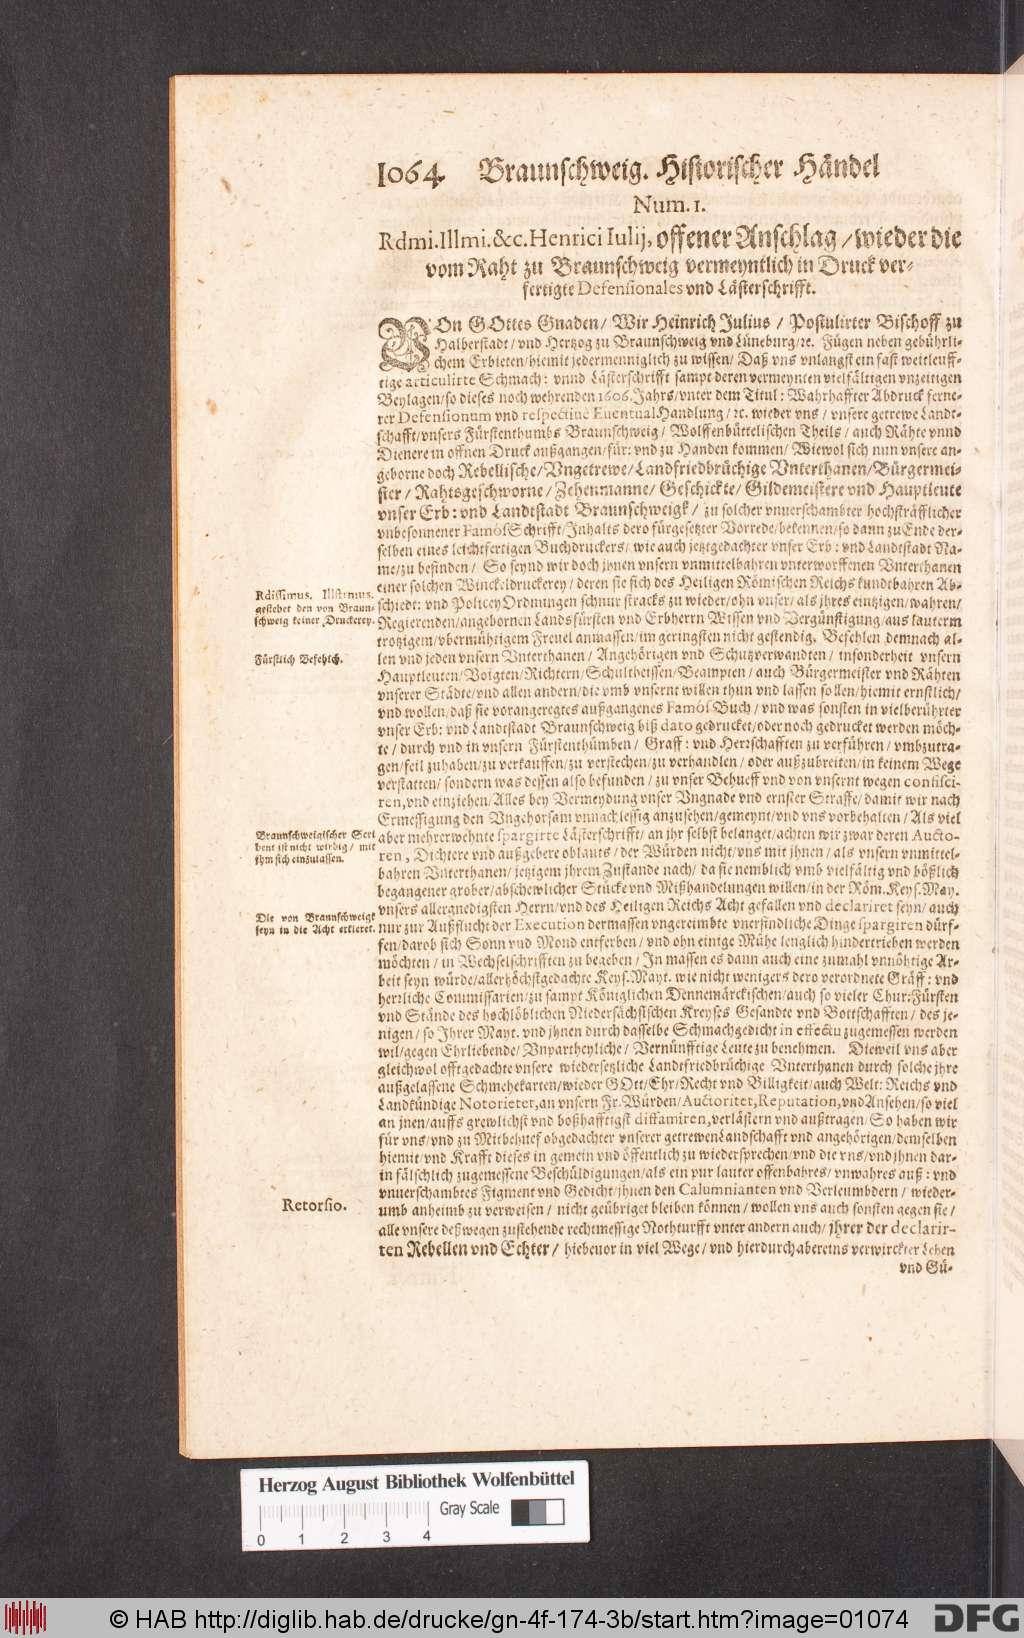 1064 Braunschweig. Historischer Händel
Num. 1.
Rdmi. Illmi. &c. Henrici Iulij, offener Anschlag / wieder die
vom Raht zu Braunschweig vermeyntlich in Druck ver-
fertigte Defensionales vnd Lästerschrifft.
VOn GOttes Gnaden / Wir Heinrich Julius / Postulirter Bischoff zu
Halberstadt / vnd Hertzog zu Braunschweig vnd Lüneburg / ꝛc. Fügen neben gebührli-
chem Erbieten / hiemit jedermenniglich zu wissen / Daß vns vnlangst ein fast weitleuff-
tige articulirte Schmach: vnnd Lästerschrifft sampt deren vermeynten vielfältigen vnzeitigen
Beylagen / so dieses noch wehrenden 1606. Jahrs / vnter dem Titul: Wahrhaffter Abdruck ferne-
rer Defensionum vnd respectiue Euentual Handlung / ꝛc. wieder vns / vnsere getrewe Landt-
schafft / vnsers Fürstenthumbs Braunschweig / Wolffenbüttelischen Theils / auch Rähte vnnd
Dienere in offnen Druck außgangen / für: vnd zu Handen kommen / Wiewol sich nun vnsere an-
geborne doch Rebellische / Vngetrewe / Landfriedbrüchige Vnterthanen / Bürgermei-
ster / Rahtsgeschworne / Zehenmanne / Geschickte / Gildemeistere vnd Hauptleute
vnser Erb: vnd Landtstadt Braunschweigk / zu solcher vnuerschambter hochsträfflicher
vnbesonnener Famos Schrifft / Inhalts dero fürgesetzter Vorrede / bekennen / so dann zu Ende der-
selben eines leichtfertigen Buchdruckers / wie auch jetztgedachter vnser Erb: vnd Landtstadt Na-
me / zu befinden / So seynd wir doch jhnen vnsern vnmittelbahren vnterworffenen Vnterthanen
einer solchen Winckeldruckerey / deren sie sich des Heiligen Römischen Reichs kundtbahren Ab-
schiedt: vnd Policey Ordnungen schnur stracks zu wieder / ohn vnser / als jhres eintzigen / wahren /
Regierenden / angebornen Landsfürsten vnd Erbherrn Wissen vnd Vergünstigung / aus lauterm
trotzigem / vbermühtigem Freuel anmassen / im geringsten nicht gestendig. Befehlen demnach al-
len vnd jeden vnsern Vnterthanen / Angehörigen vnd Schutzverwandten / insonderheit vnsern
Hauptleuten / Voigten / Richtern / Schultheissen / Beampten / auch Bürgermeister vnd Rähten
vnserer Städte / vnd allen andern / die vmb vnsernt willen thun vnd lassen sollen / hiemit ernstlich /
vnd wollen / daß sie vorangeregtes außgangenes Famos Buch / vnd was sonsten in vielberührter
vnser Erb: vnd Landtstadt Braunschweig biß dato gedrucket / oder noch gedrucket werden möch-
te / durch vnd in vnsern Fürstenthümben / Graff: vnd Herrschafften zu verführen / vmbzutra-
gen / feil zuhaben / zu verkauffen / zu verstechen / zu verhandlen / oder außzubreiten / in keinem Wege
verstatten / sondern was dessen also befunden / zu vnser Behueff vnd von vnsernt wegen confisci-
ren, vnd einziehen / Alles bey Vermeydung vnser Vngnade vnd ernster Straffe / damit wir nach
Ermessigung den Vngehorsam vnnachlessig anzusehen / gemeynt / vnd vns vorbehalten / Als viel
aber mehrerwehnte spargirte Lästerschrifft / an jhr selbst belanget / achten wir zwar deren Aucto-
ren, Dichtere vnd außgebere oblauts / der Würden nicht / vns mit jhnen / als vnsern vnmittel-
bahren Vnterthanen / jetzigem jhrem Zustande nach / da sie nemblich vmb vielfältig vnd bößlich
begangener grober / abschewlicher Stücke vnd Mißhandelungen willen / in der Röm. Keys. May.
vnsers allergnedigsten Herrn / vnd des Heiligen Reichs Acht gefallen vnd declariret seyn / auch
nur zur Außflucht der Execution dermassen vngereimbte vnerfindliche Dinge spargiren dürf-
fen / darob sich Sonn vnd Mond entferben / vnd ohn einige Mühe lenglich hindertrieben werden
möchten / in Wechselschrifften zu begeben / In massen es dann auch eine zumahl vnnöhtige Ar-
beit seyn würde / allerhöchstgedachte Keys. Mayt. wie nicht wenigers dero verordnete Gräff: vnd
herrliche Commissarien / zu sampt Königlichen Dennemärckischen / auch so vieler Chur: Fürsten
vnd Stände des hochlöblichen Niedersächsischen Kreyses Gesandte vnd Bottschafften / des je-
nigen / so Ihrer Mayt. vnd jhnen durch dasselbe Schmachgedicht in effectu zugemessen werden
wil / gegen Ehrliebende / Vnpartheyliche / Vernünfftige Leute zu benehmen. Dieweil vns aber
gleichwol offtgedachte vnsere wiedersetzliche Landtfriedbrüchige Vnterthanen durch solche jhre
außgelassene Schmehekarten / wieder GOtt / Ehr / Recht vnd Billigkeit / auch Welt: Reichs vnd
Landkündige Notorietet, an vnsern Fr. Würden / Auctoritet, Reputation, vnd Ansehen / so viel
an jnen / auffs grewlichst vnd boßhafftigst diffamiren, verlästern vnd außtragen / So haben wir
für vns / vnd zu Mitbehuef obgedachter vnserer getrewen Landschafft vnd angehörigen / demselben
hiemit / vnd Krafft dieses in gemein vnd öffentlich zu wiedersprechen / vnd die vns / vnd jhnen dar-
in fälschlich zugemessene Beschüldigungen / als ein pur lauter offenbahres / vnwahres auß: vnd
vnuerschambtes Figment vnd Gedicht / jhnen den Calumnianten vnd Verleumbdern / wieder-
umb anheimb zu verweisen / nicht geübriget bleiben können / wollen vns auch sonsten gegen sie /
alle vnsere deßwegen zustehende rechtmessige Nothturfft vnter andern auch / jhrer der declarir-
ten Rebellen vnd Echter / hiebeuor in viel Wege / vnd hierdurch abereins verwirckter Lehen
vnd Gü-
Rdissimus. Illstrimus.
gestehet den von Braun-
schweig keiner Druckerey.
Fürstlich Befehlch.
Braunschweigischer Scri
bent ist nicht wirdig / mit
ihm sich einzulassen.
Die von Braunschweigk
seyn in die Acht erkleret.
Retorsio.
Herzog August Bibliothek Wolfenbüttel
Gray Scale
0 1 2 3 4
© HAB http://diglib.hab.de/drucke/gn-4f-174-3b/start.htm?image=01074
DFG